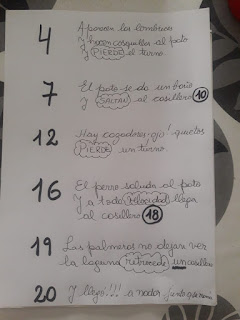 4 Aparecen las lombrices
y hacen cosquillas al pato
y PIERDE el turno.
7 El pato se da un baño
y SALTA al casillero 10
12 Hay cazadores ojo! quietos
PIERDE un turno.
16 El perro saluda al pato
y a toda velocidad llega
al casillero 18
19 Las palmeras no dejan ver
la laguna retrocede un casillero
20 Y llegó!!! a nadar junto a